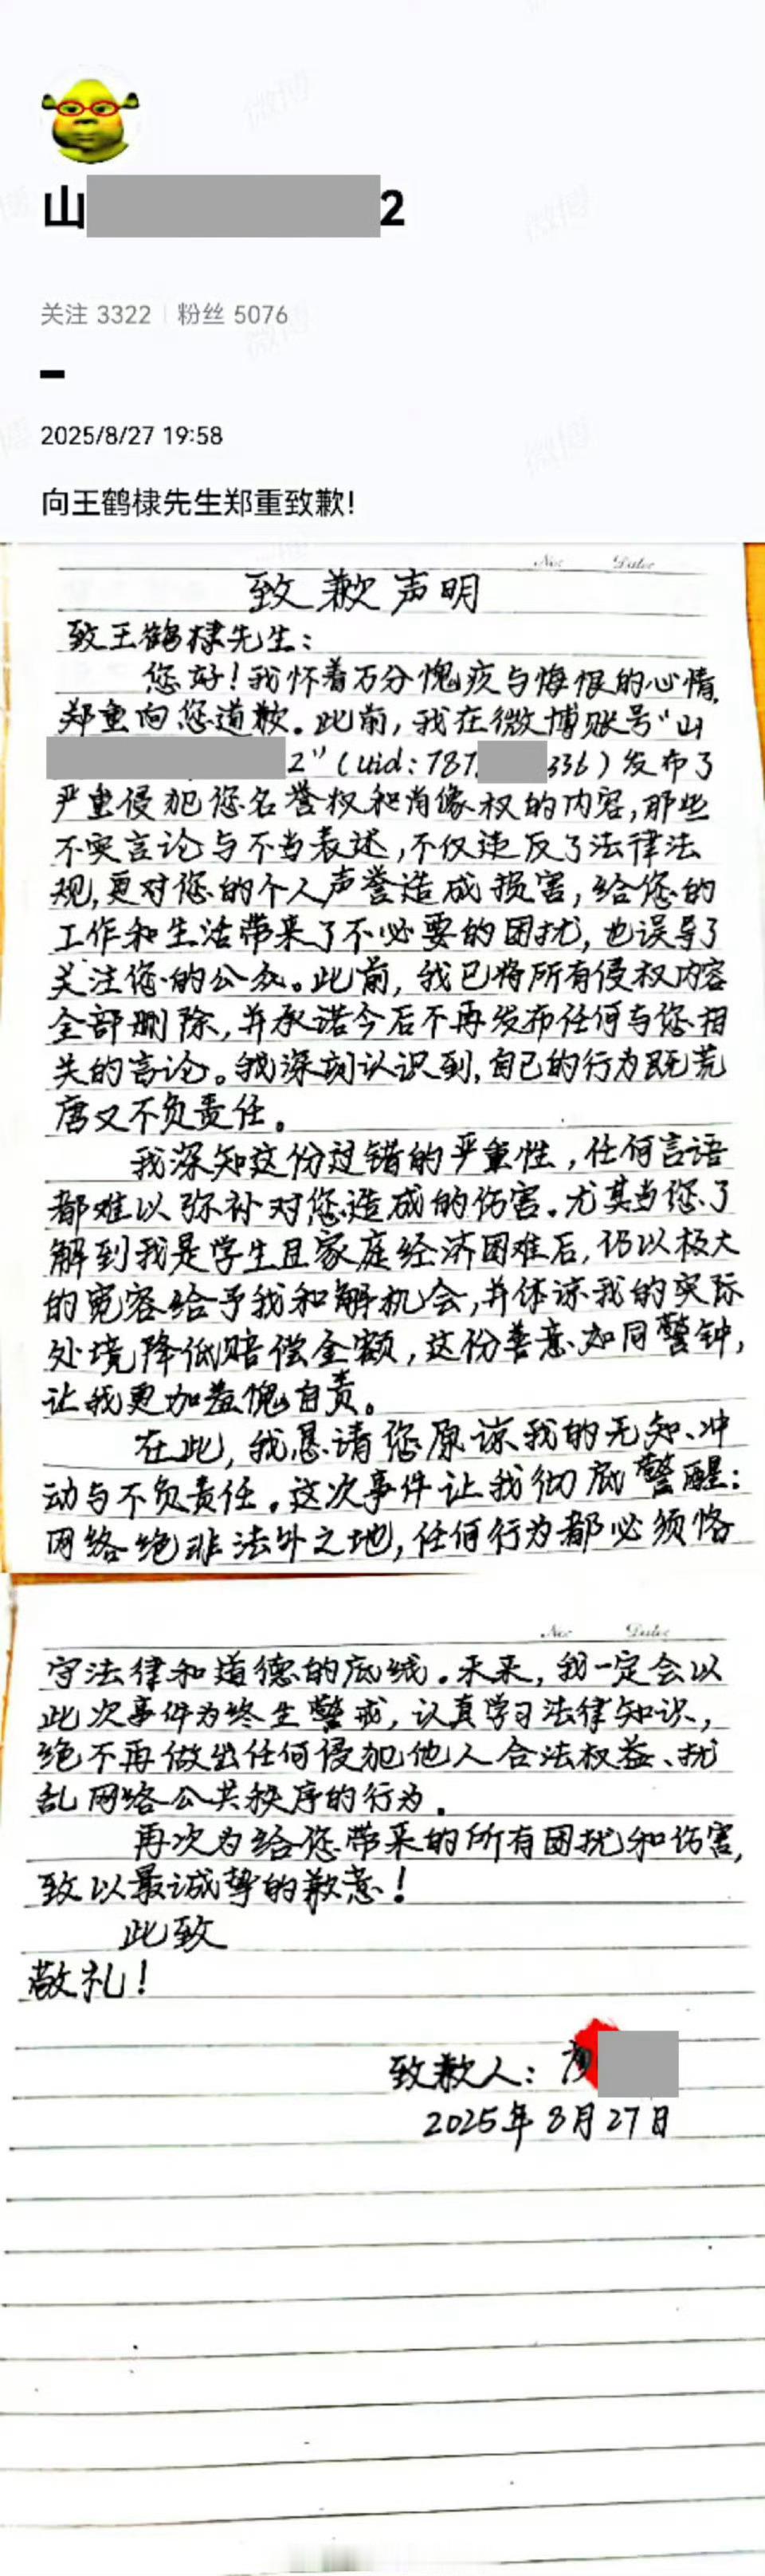 山
2
关注 3322 粉丝 5076
2025/8/27 19:58
向王鹤棣先生郑重致歉!
No: Date:
致歉声明
致王鹤棣先生:
您好!我怀着万分愧疚与悔恨的心情,
郑重向您道歉。此前,我在微博账号“山
2”(uid:787 336)发布了
严重侵犯您名誉权和肖像权的内容,那些
不实言论与不当表述,不仅违反了法律法
规,更对您的个人声誉造成损害,给您的
工作和生活带来了不必要的困扰,也误导了
关注您的公众。此前,我已将所有侵权内容
全部删除,并承诺今后不再发布任何与您相
关的言论。我深刻认识到,自己的行为既荒
唐又不负责任。
我深知这份过错的严重性,任何言语
都难以弥补对您造成的伤害。尤其当您了
解到我是学生且家庭经济困难后,仍以极大
的宽容给予我和解机会,并体谅我的实际
处境降低赔偿金额,这份善意如同警钟,
让我更加羞愧自责。
在此,我恳请您原谅我的无知、冲
动与不负责任。这次事件让我彻底警醒:
网络绝非法外之地,任何行为都必须恪
No: Date:
守法律和道德的底线。未来,我一定会以
此次事件为终生警戒,认真学习法律知识,
绝不再做出任何侵犯他人合法权益、扰
乱网络公共秩序的行为。
再次为给您带来的所有困扰和伤害,
致以最诚挚的歉意!
此致
敬礼!
致歉人:
2025年8月27日